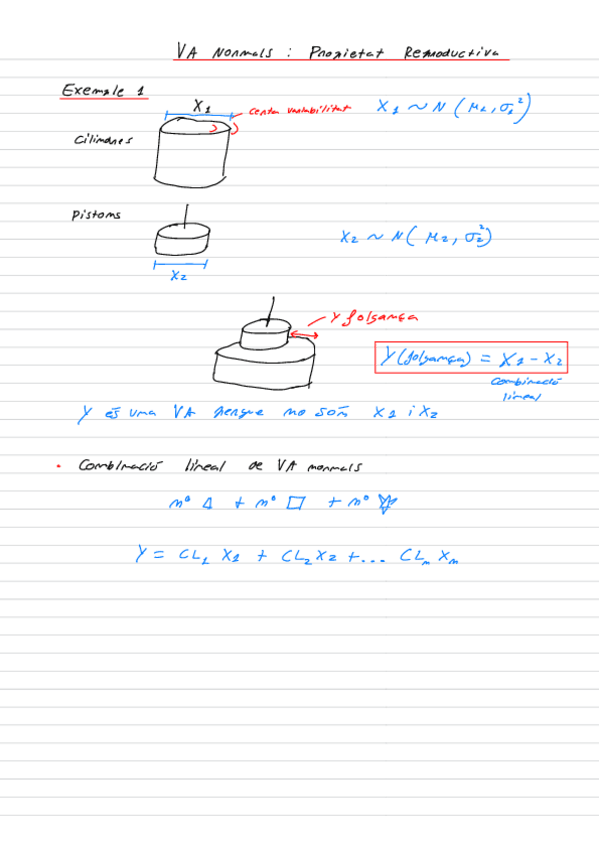 VA Normals : Propietat Reproductiva
Exemple 1
X1
certa variabilitat
X1 ~ N (μ1, σ1²)
Cilindres
Pistons
X2 ~ N( μ2, σ2²)
X2
Y folgança
Y(folgança) = X1 - X2
combinació
lineal
Y és una VA perque ho són X1 i X2
• Combinació lineal de VA normals
nº △ + nº □ + nº
Y = CL1 X1 + CL2 X2 + ... CLn Xn